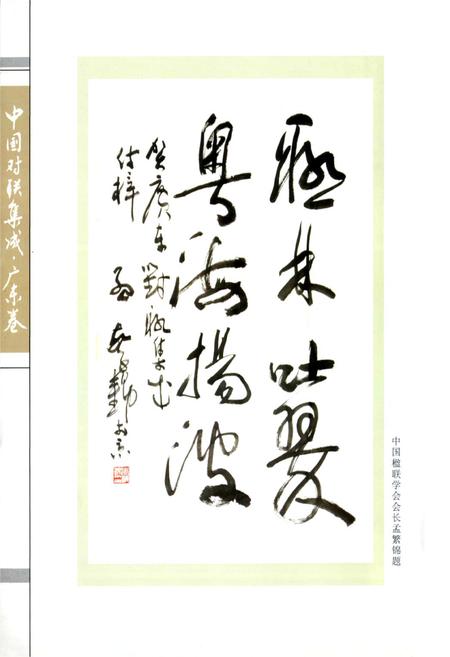 中国对联集成·广东卷
聯林吐翠
粤海揚波
贺廣东對联集成
付梓
孟繁錦于京
中国楹联学会会长孟繁锦题